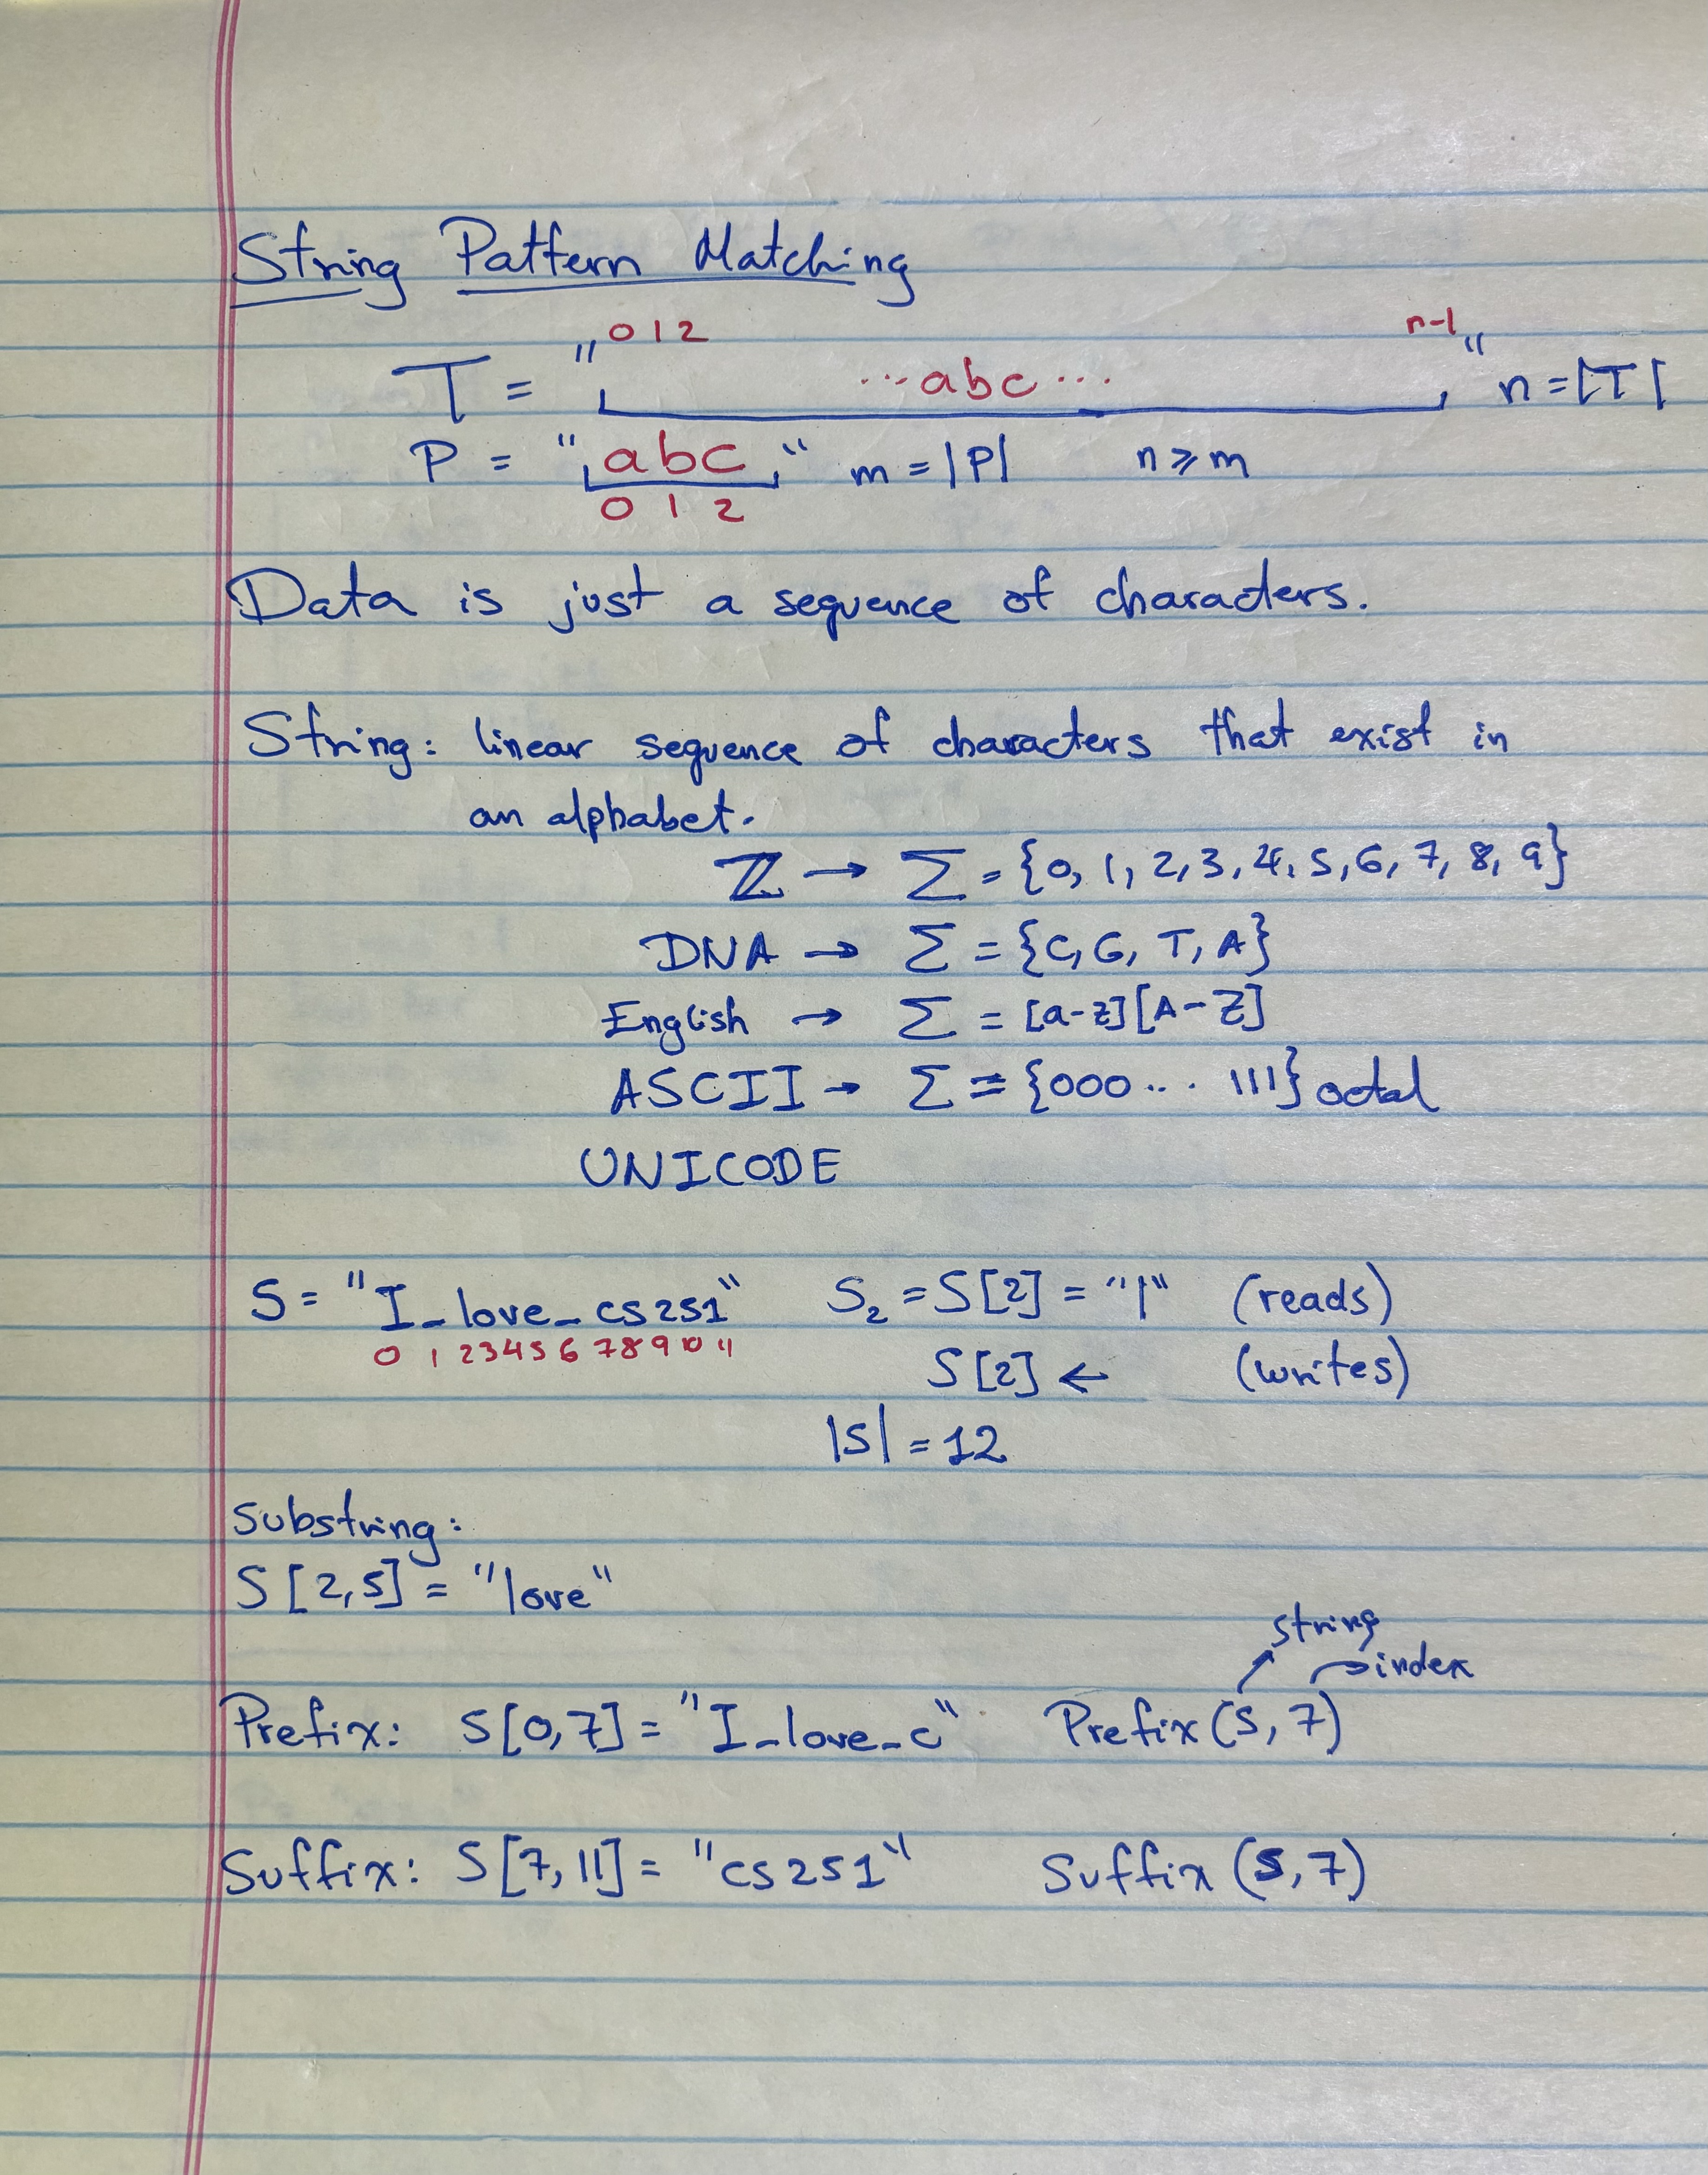 String Pattern Matching
0 1 2 n-1
T = " ...abc... " n = |T|
P = "abc" m = |P| n ≥ m
0 1 2
Data is just a sequence of characters.
String: linear sequence of characters that exist in
an alphabet.
ℤ → Σ = {0, 1, 2, 3, 4, 5, 6, 7, 8, 9}
DNA → Σ = {C, G, T, A}
English → Σ = [a-z][A-Z]
ASCII → Σ = {000... 111} octal
UNICODE
S = "I_love_cs251" S₂ = S[2] = "l" (reads)
0 1 2 3 4 5 6 7 8 9 10 11 S[2] ← (writes)
|S| = 12
Substring:
S[2,5] = "love"
string
index
Prefix: S[0,7] = "I_love_c" Prefix(S, 7)
Suffix: S[7,11] = "cs251" Suffix (S, 7)